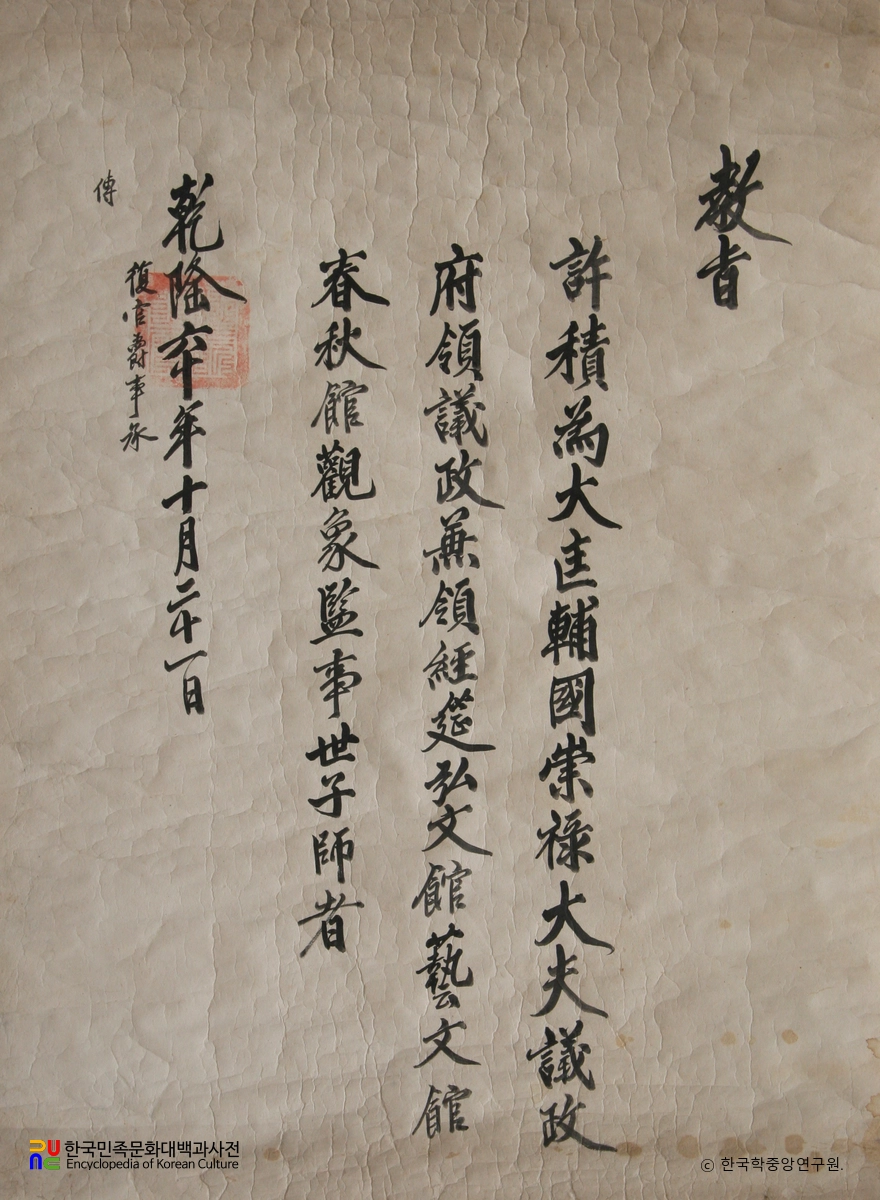 教旨
許積爲大匡輔國崇祿大夫議政
府領議政兼領經筵弘文館藝文館
春秋館觀象監事世子師者
乾隆六十年十月二十一日
復官爵事承
傳
한국민족문화대백과사전
Encyclopedia of Korean Culture
© 한국학중앙연구원.